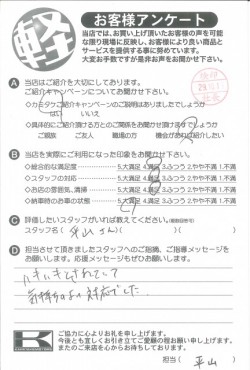 軽
お客様アンケート
当店では、お買い上げ頂いたお客様の声を可能
な限り現場に反映し、お客様により良い商品と
サービスを提供する事に努めています。
大変お手数ですが是非お声をお聞かせ下さい。
A 当店はご紹介を大切にしております。
ご紹介キャンペーンについてお聞かせ下さい。
はい いいえ
◇具体的にご紹介頂ける方とのご関係をお聞かせ頂けますでしょうか
ご親族 ご友人 職場の方 機会があればご紹介したい
B 当店を実際にご利用になった印象をお聞かせ下さい。
◇総合的な満足度 5.大満足 4.満足 3.ふつう 2.やや不満 1.不満
◇スタッフの対応 5.大満足 4.満足 3.ふつう 2.やや不満 1.不満
◇お店の雰囲気、清掃 5.大満足 4.満足 3.ふつう 2.やや不満 1.不満
◇納車時のお車の状態 5.大満足 4.満足 3.ふつう 2.やや不満 1.不満
C 評価したいスタッフがいれば教えてください。
スタッフ名( 平山さん )( )
D 担当させて頂きましたスタッフへのご指摘、ご指導メッセージを
お願いします。応援メッセージもぜひお願いします。
いきいきとされていて
気持ちのよい対応でした。
K
ご協力に心よりお礼を申し上げます。
今後とも宜しくお引き立てご愛顧の程お願い申し上げます。
またのご来店を心からお待ちしております。
担当( 平山 )